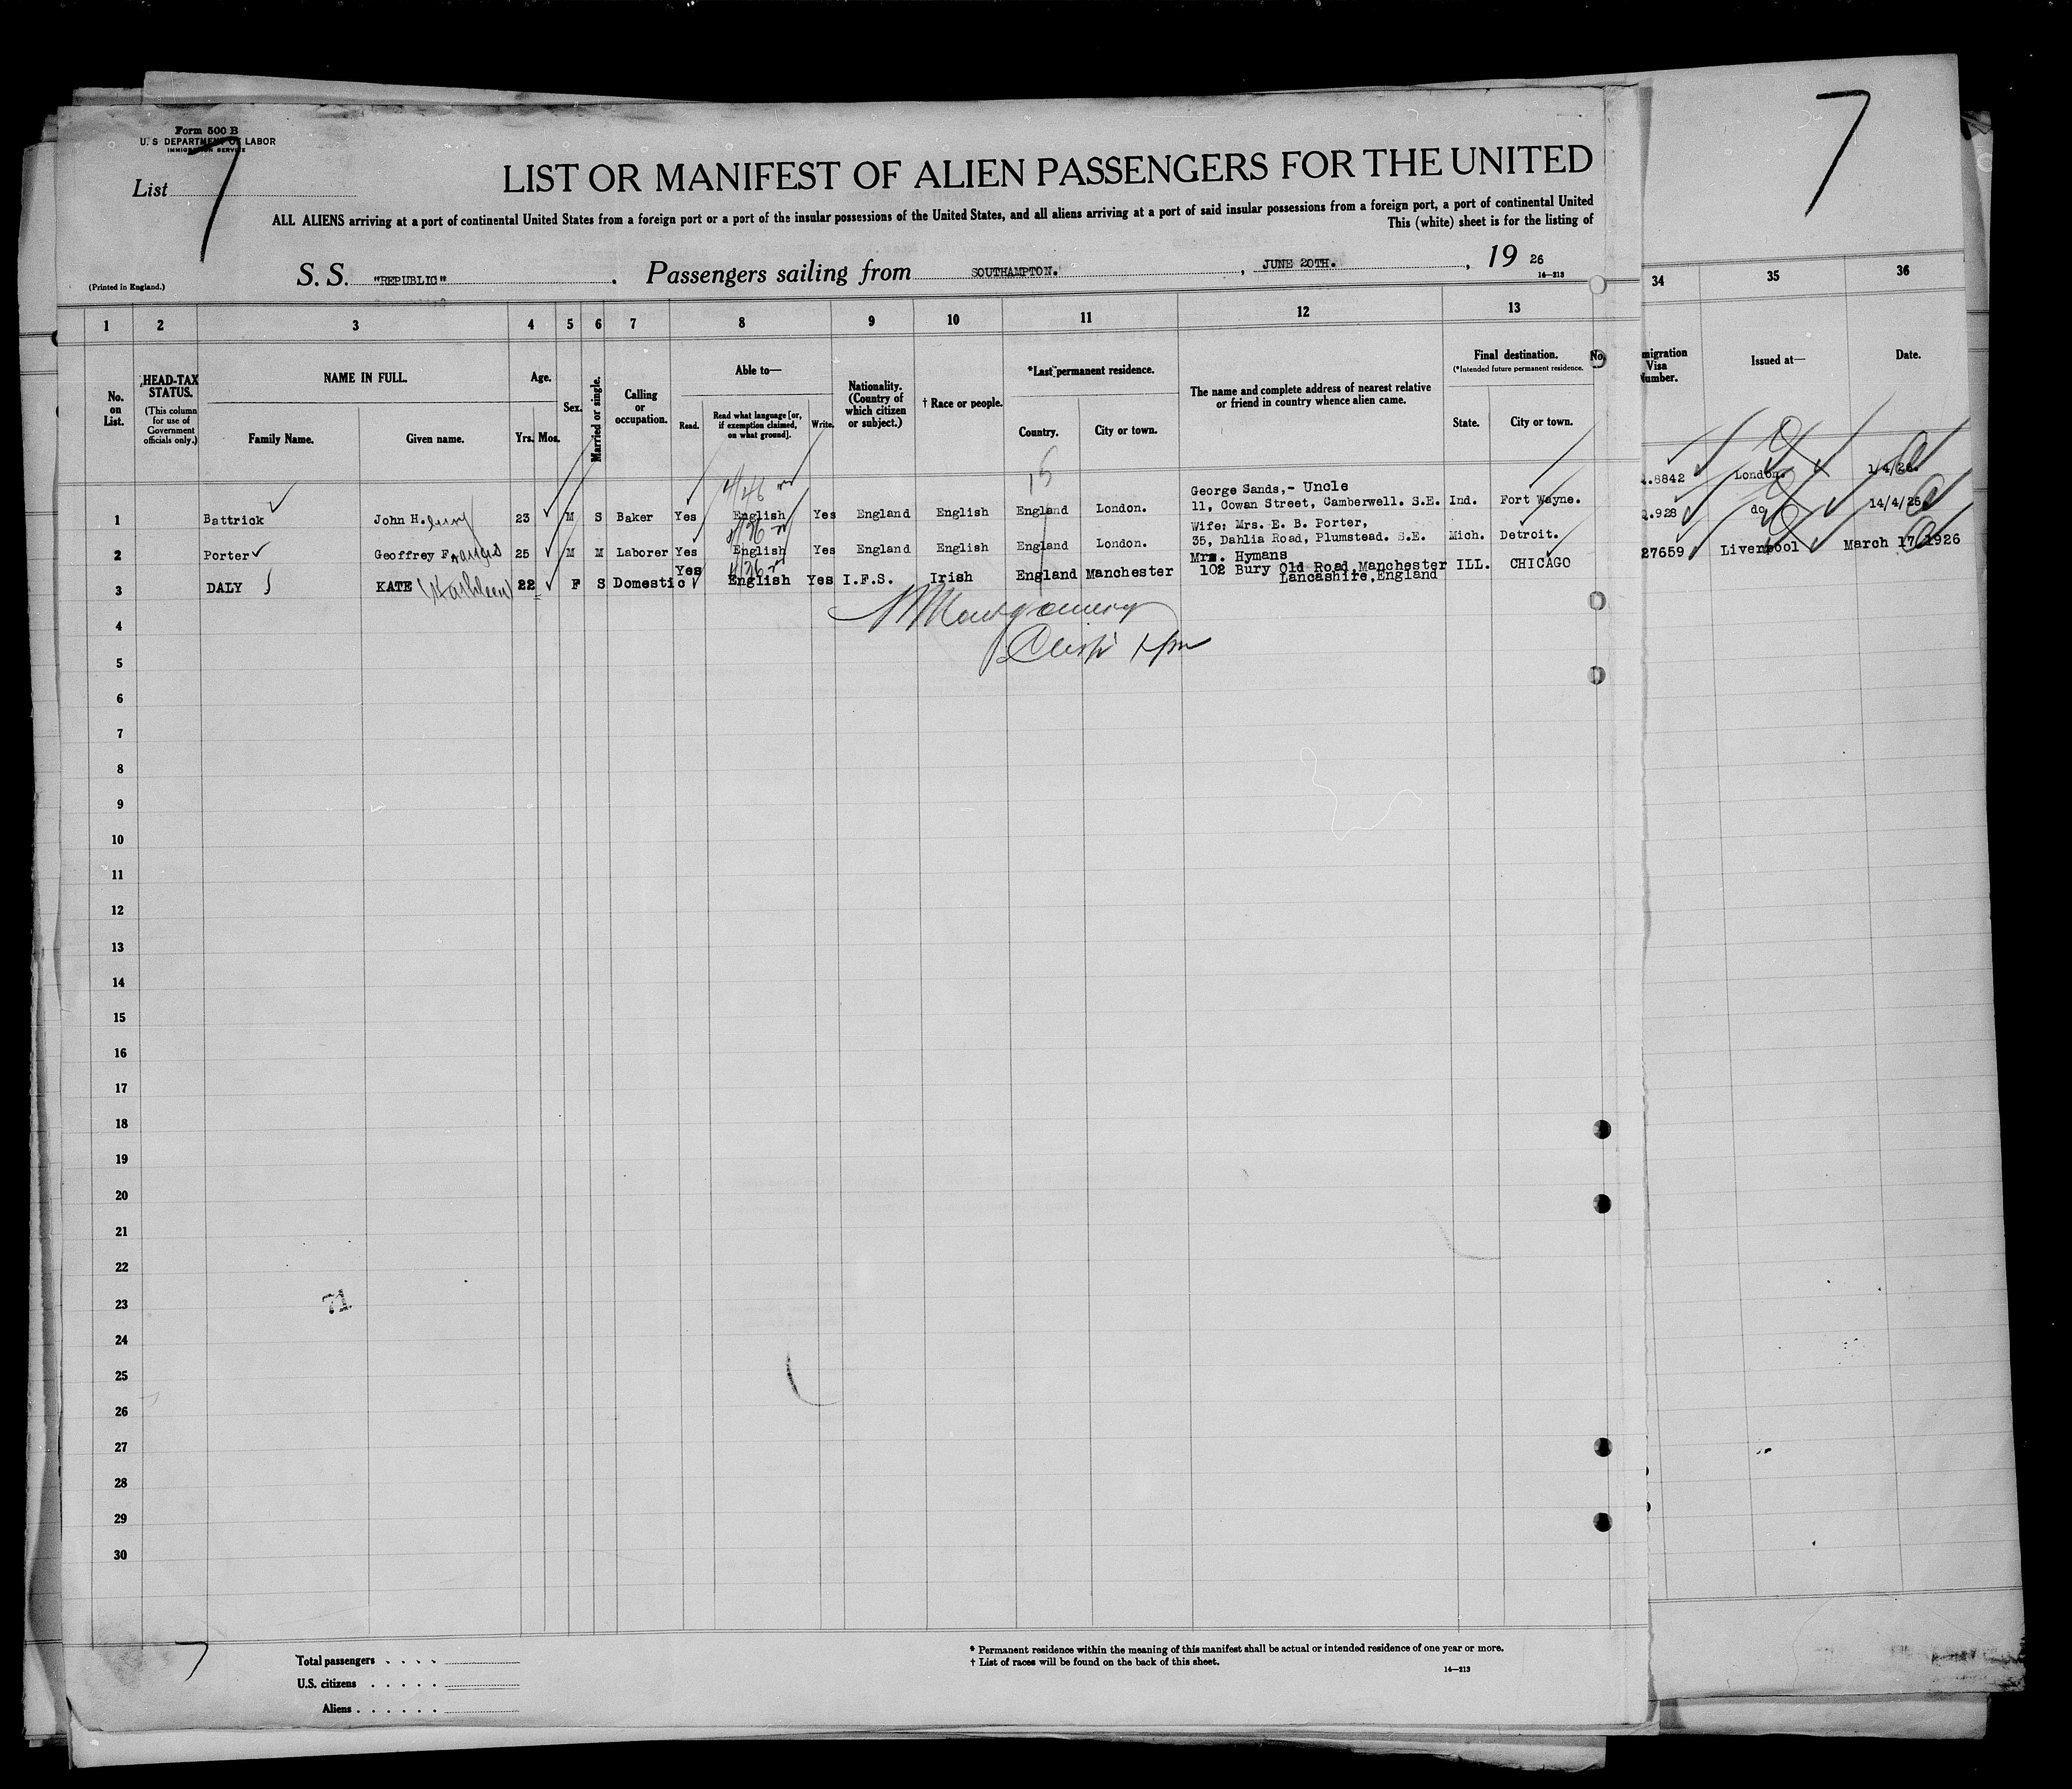 Form 500 B
U. S DEPARTMENT OF LABOR
IMMIGRATION SERVICE
7
7
List
LIST OR MANIFEST OF ALIEN PASSENGERS FOR THE UNITED
ALL ALIENS arriving at a port of continental United States from a foreign port or a port of the insular possessions of the United States, and all aliens arriving at a port of said insular possessions from a foreign port, a port of continental United
This (white) sheet is for the listing of
(Printed in England.)
S. S. "REPUBLIC" . Passengers sailing from SOUTHAMPTON. , JUNE 20TH. , 19 26
14—213
1 2 3 4 5 6 7 8 9 10 11 12 13 34 35 36
No. on List.
HEAD-TAX STATUS.
(This column for use of Government officials only.)
NAME IN FULL.
Family Name. Given name.
Age.
Yrs. Mos.
Sex.
Married or single.
Calling or occupation.
Able to—
Read. Read what language [or, if exemption claimed, on what ground]. Write.
Nationality. (Country of which citizen or subject.)
† Race or people.
*Last permanent residence.
Country. City or town.
The name and complete address of nearest relative or friend in country whence alien came.
Final destination.
(*Intended future permanent residence.
State. City or town.
No.
migration Visa Number.
Issued at—
Date.
15
George Sands,- Uncle
1 Battrick John Henry 23 M S Baker Yes English Yes England English England London. 11, Cowan Street, Camberwell. S.E. Ind. Fort Wayne. 8842 London. 1/4/26.
Wife: Mrs. E. B. Porter,
2 Porter Geoffrey Francis 25 M M Laborer Yes English Yes England English England London. 35, Dahlia Road, Plumstead. S.E. Mich. Detroit. .928 do 14/4/26
Mrs. Hymans
3 DALY KATE (Kathleen) 22 F S Domestic Yes English Yes I.F.S. Irish England Manchester 102 Bury Old Road Manchester ILL. CHICAGO 27659 Liverpool March 17 1926
Lancashire, England
Montgomery
4
5
6
7
8
9
10
11
12
13
14
15
16
17
18
19
20
21
22
23
71
24
25
26
27
28
29
30
7
Total passengers . . . .
U.S. citizens . . . . .
Aliens . . . . . .
* Permanent residence within the meaning of this manifest shall be actual or intended residence of one year or more.
† List of races will be found on the back of this sheet.
14—213